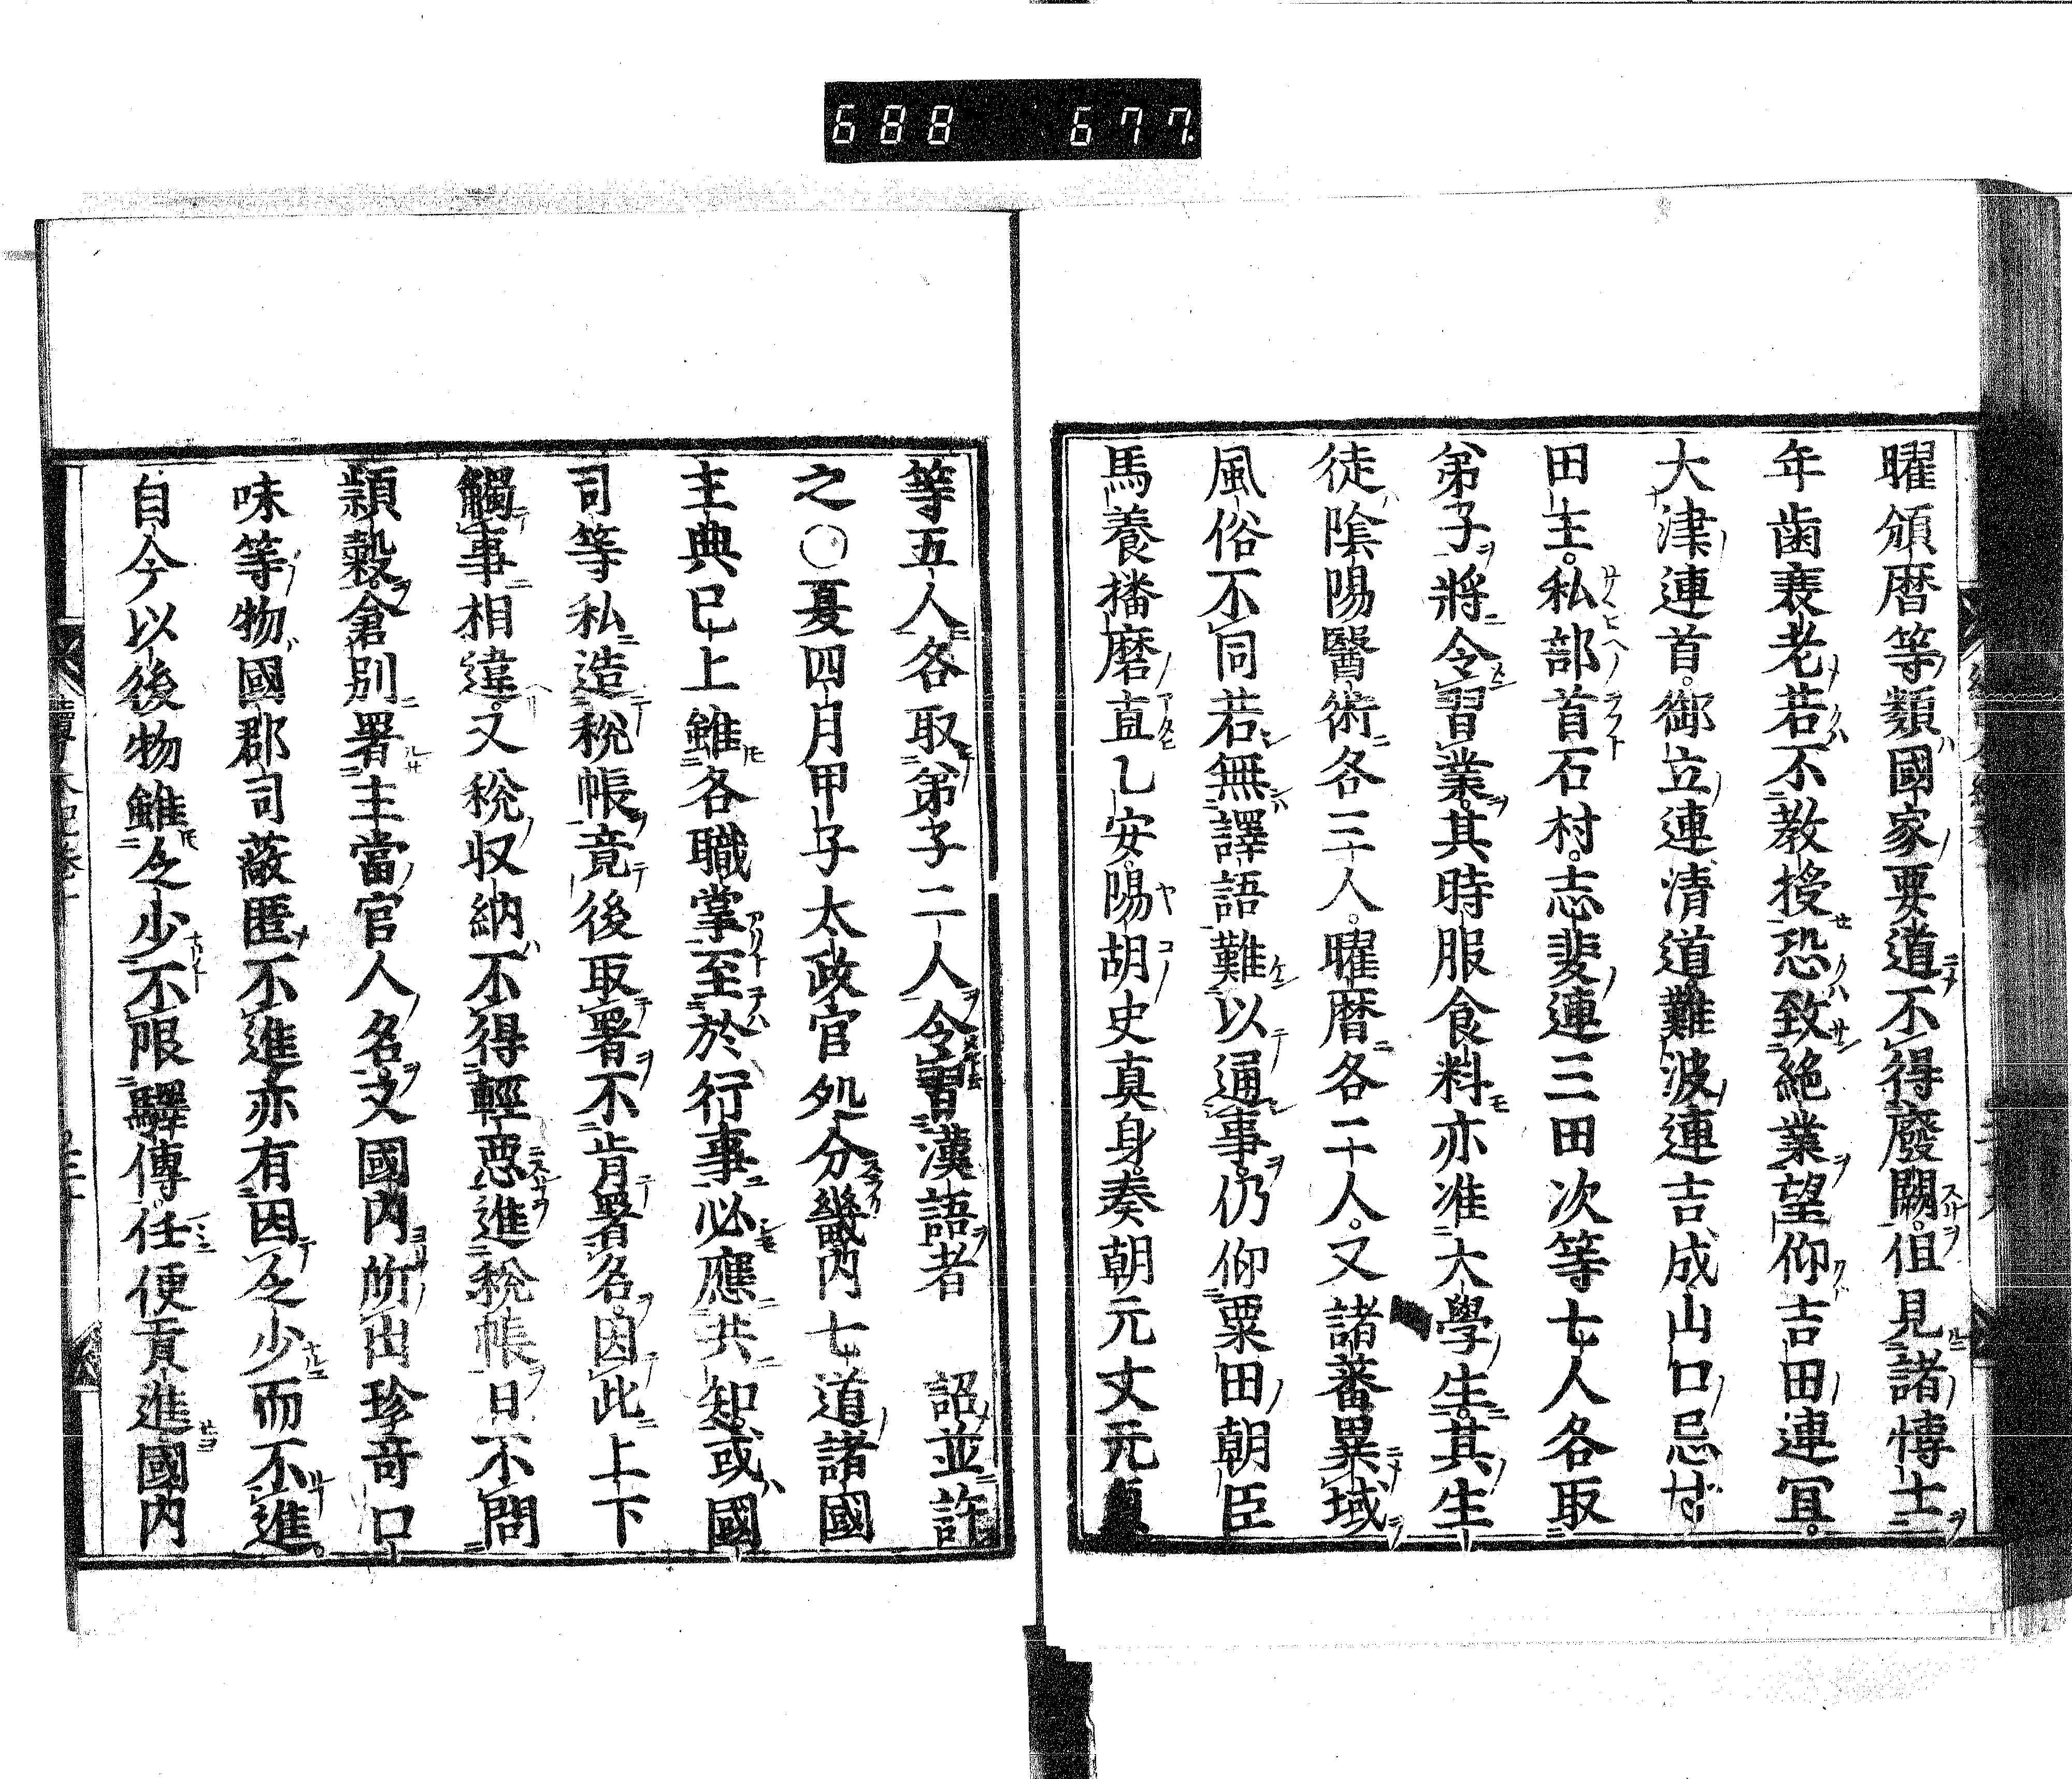 688 677
曜頒暦等類國家要道不得廢闕但見諸博士
年歯衰老若不教授恐致絶業望仰吉田連冝
大津連首御立連清道難波連吉成山口忌寸
田主私部首石村志斐連三田次等七人各取
弟子將令習業其時服食料亦准大學生其生
徒陰陽醫術各三人曜暦各二人又諸蕃異域
風俗不同若無譯語難以通事仍仰粟田朝臣
馬養播磨直乙安陽胡史真身秦朝元文元貞
等五人各取弟子二人令習漢語者 詔並許
之○夏四月甲子太政官処分畿内七道諸國
主典已上雖各職掌至於行事必應共知或國
司等私造税帳竟後取署不肯署名因此上下
觸事相違又税収納不得輕悪進税帳日不問
頴穀倉別署主當官人名文國内所出珍竒口
味等物國郡司蔽匿不進亦有因乏少而不進
自今以後物雖乏少不限驛傳任便貢進國内